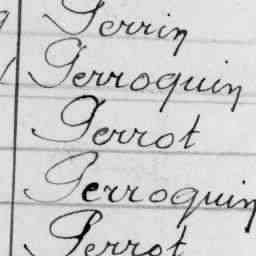 Perrin
Perroquin
Perrot
Perroquin
Perrot